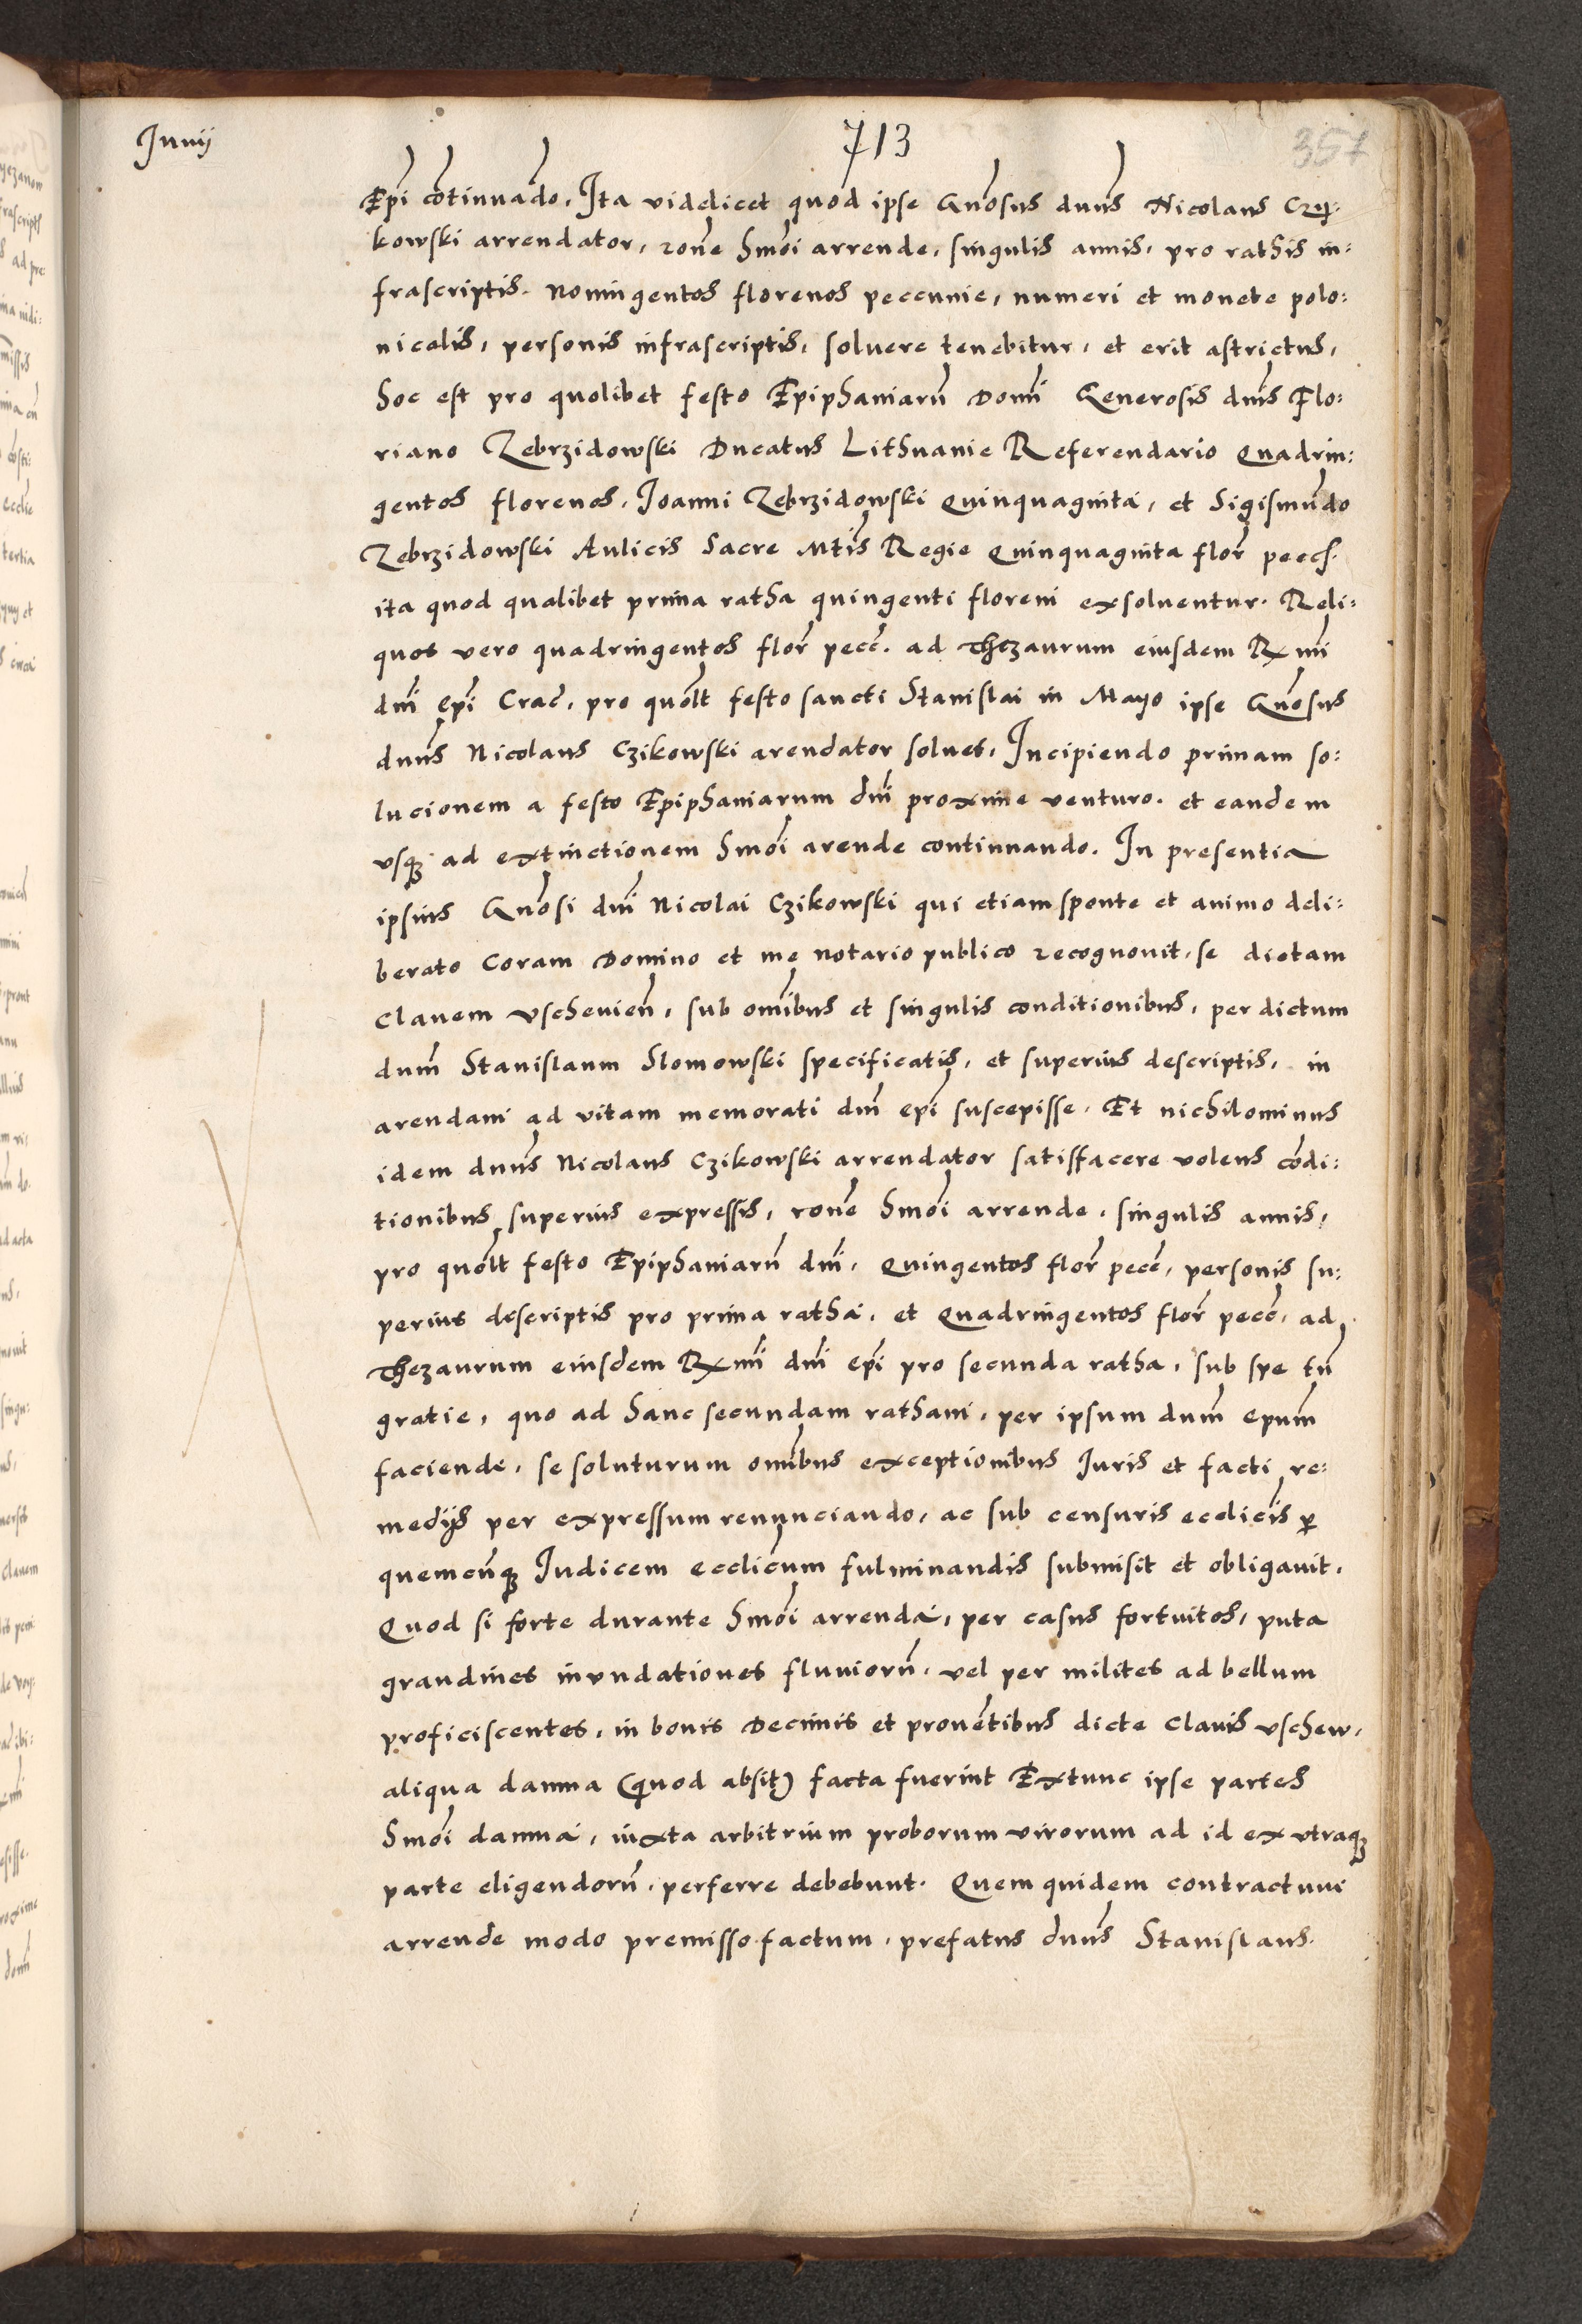 Junij
713
357
Epi continuando. Ita videlicet quod ipse Gnosus dnus Nicolaus Czy-
kowski arrendator, rone hmoi arrende, singulis annis, pro rathis in:
frascriptis. Nomingentos florenos peccunie, numeri et monete polo:
nicalis, personis infrascriptis, soluere tenebitur, et erit astrictus,
hoc est pro quolibet festo Epiphaniaru Domi Generosis dnis Flo:
riano Zebrzidowski Ducatus Lithuanie Referendario Quadrin:
gentos florenos, Joanni Zebrzidowski Quinquaginta, et Sigismudo
Zebrzidowski Aulicis Sacre Mtis Regie Quinquaginta flor pecc.
ita quod qualibet prima ratha quingenti floreni exsoluentur. Reli:
quos vero quadringentos flor pecc. ad Thezaurum eiusdem Rmi
dni epi Crac, pro quolt festo sancti Stanislai in Mayo ipse Gnosus
dnus Nicolaus Czikowski arendator soluet, Incipiendo primam so:
lucionem a festo Epiphaniarum dni proxime venturo. et eandem
vsq ad extinctionem hmoi arende continuando. In presentia
ipsius Gnosi dni Nicolai Czikowski qui etiam sponte et animo deli:
berato Coram Domino et me notario publico recognouit, se dictam
clauem vscheuien, sub omibus et singulis conditionibus, per dictum
dnum Stanislaum Slomowski specificatis, et superius descriptis, in
arendam ad vitam memorati dni epi suscepisse. Et nichilominus
idem dnus Nicolaus Czikowski arrendator satisfacere volens codi:
tionibus superius expressis, rone hmoi arrende, singulis annis,
pro quolt festo Epiphaniaru dni, Quingentos flor pecc, personis su:
perius descriptis pro prima ratha, et Quadringentos flor pecc, ad
Thezaurum eiusdem Rmi dni epi pro secunda ratha, sub spe tn
gratie, quo ad hanc secundam ratham, per ipsum dnum epum
faciende, se soluturum omibus exceptionibus Juris et facti re:
medijs per expressum renunciando, ac sub censuris ecclicis p
quemcunq Judicem ecclicum fulminandis submisit et obligauit.
Quod si forte durante hmoi arrenda, per casus fortuitos, puta
grandines inundationes fluuioru, vel per milites ad bellum
proficiscentes, in bonis Decimis et prouetibus dicte Clauis vschew,
aliqua damna (quod absit) facta fuerint Extunc ipse partes
hmoi damna, iuxta arbitrium proborum virorum ad id ex vtraq
parte eligendoru, perferre debebunt. Quem quidem contractum
arrende modo premisso factum, prefatus dnus Stanislaus